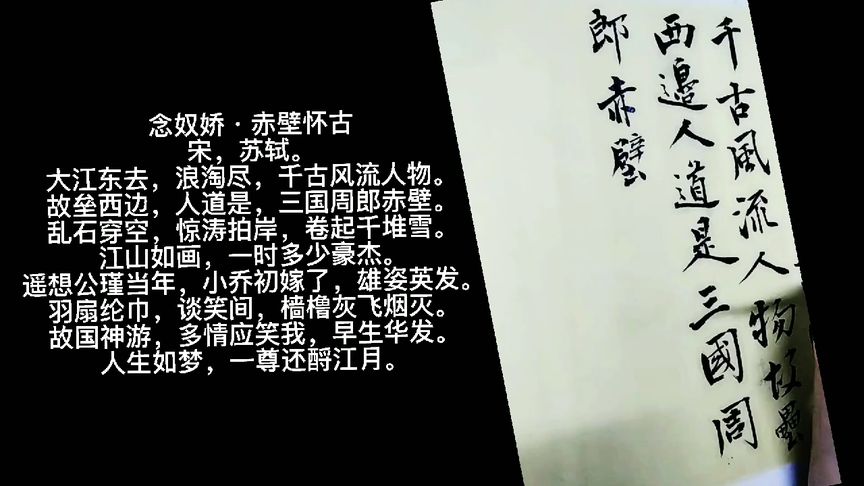 念奴娇·赤壁怀古
宋，苏轼。
大江东去，浪淘尽，千古风流人物。
故垒西边，人道是，三国周郎赤壁。
乱石穿空，惊涛拍岸，卷起千堆雪。
江山如画，一时多少豪杰。
遥想公瑾当年，小乔初嫁了，雄姿英发。
羽扇纶巾，谈笑间，樯橹灰飞烟灭。
故国神游，多情应笑我，早生华发。
人生如梦，一尊还酹江月。
千古風流人物故壘
西邊人道是三國周
郎赤壁